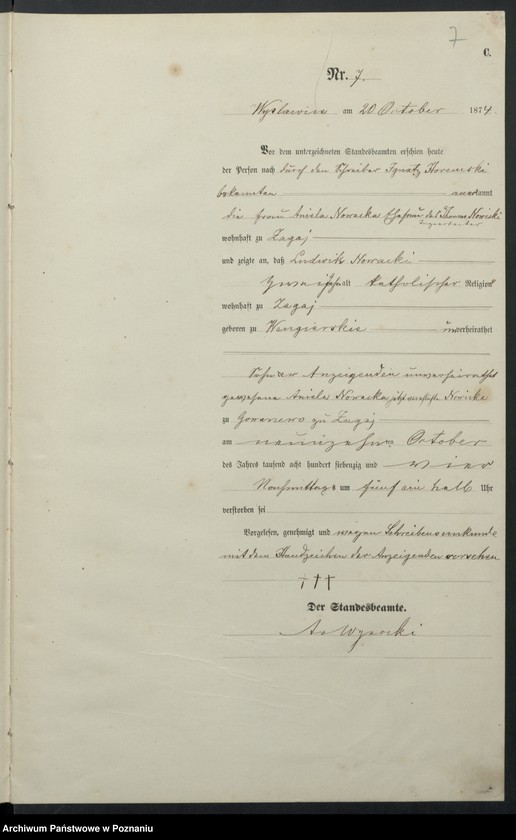 7
C.
Nr. 7.
am 20 October 1874.
Vor dem unterzeichneten Standesbeamten erschien heute
der Person nach durch den Schreiber Ignatz
bekannten anerkannt
die Frau Aniela Nowacka Ehefrau des Thomas Nowicki
wohnhaft zu Zagaj
und zeigte an, daß Ludwik Nowacki
zwei Jahr alt katholischer Religion
wohnhaft zu Zagaj
geboren zu Wengierskie unverheirathet
Sohn der Anzeigenden unverheirathet
gewesene Aniela Nowacka jetzt verehelichte Nowicka
zu zu Zagaj
am neunzehn October
des Jahres tausend acht hundert siebenzig und vier
Nachmittags um fünf ein halb Uhr
verstorben sei
Vorgelesen, genehmigt und wegen Schreibensunkunde
mit dem Handzeichen der Anzeigenden versehen
†††
Der Standesbeamte.
Wysocki
Archiwum Państwowe w Poznaniu